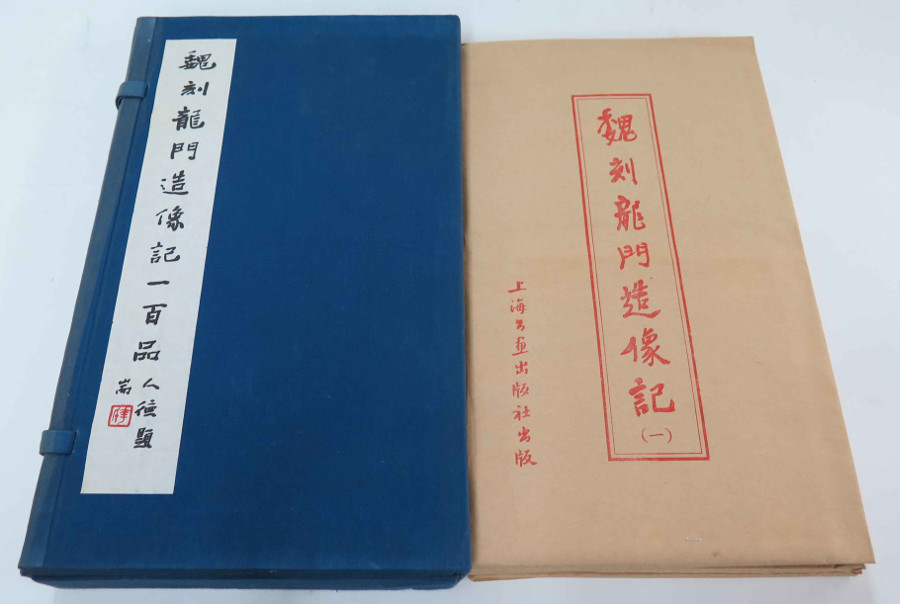 魏刻龍門造像記一百品
人徳題
嵩
魏刻龍門造像記
(一)
上海书画出版社出版